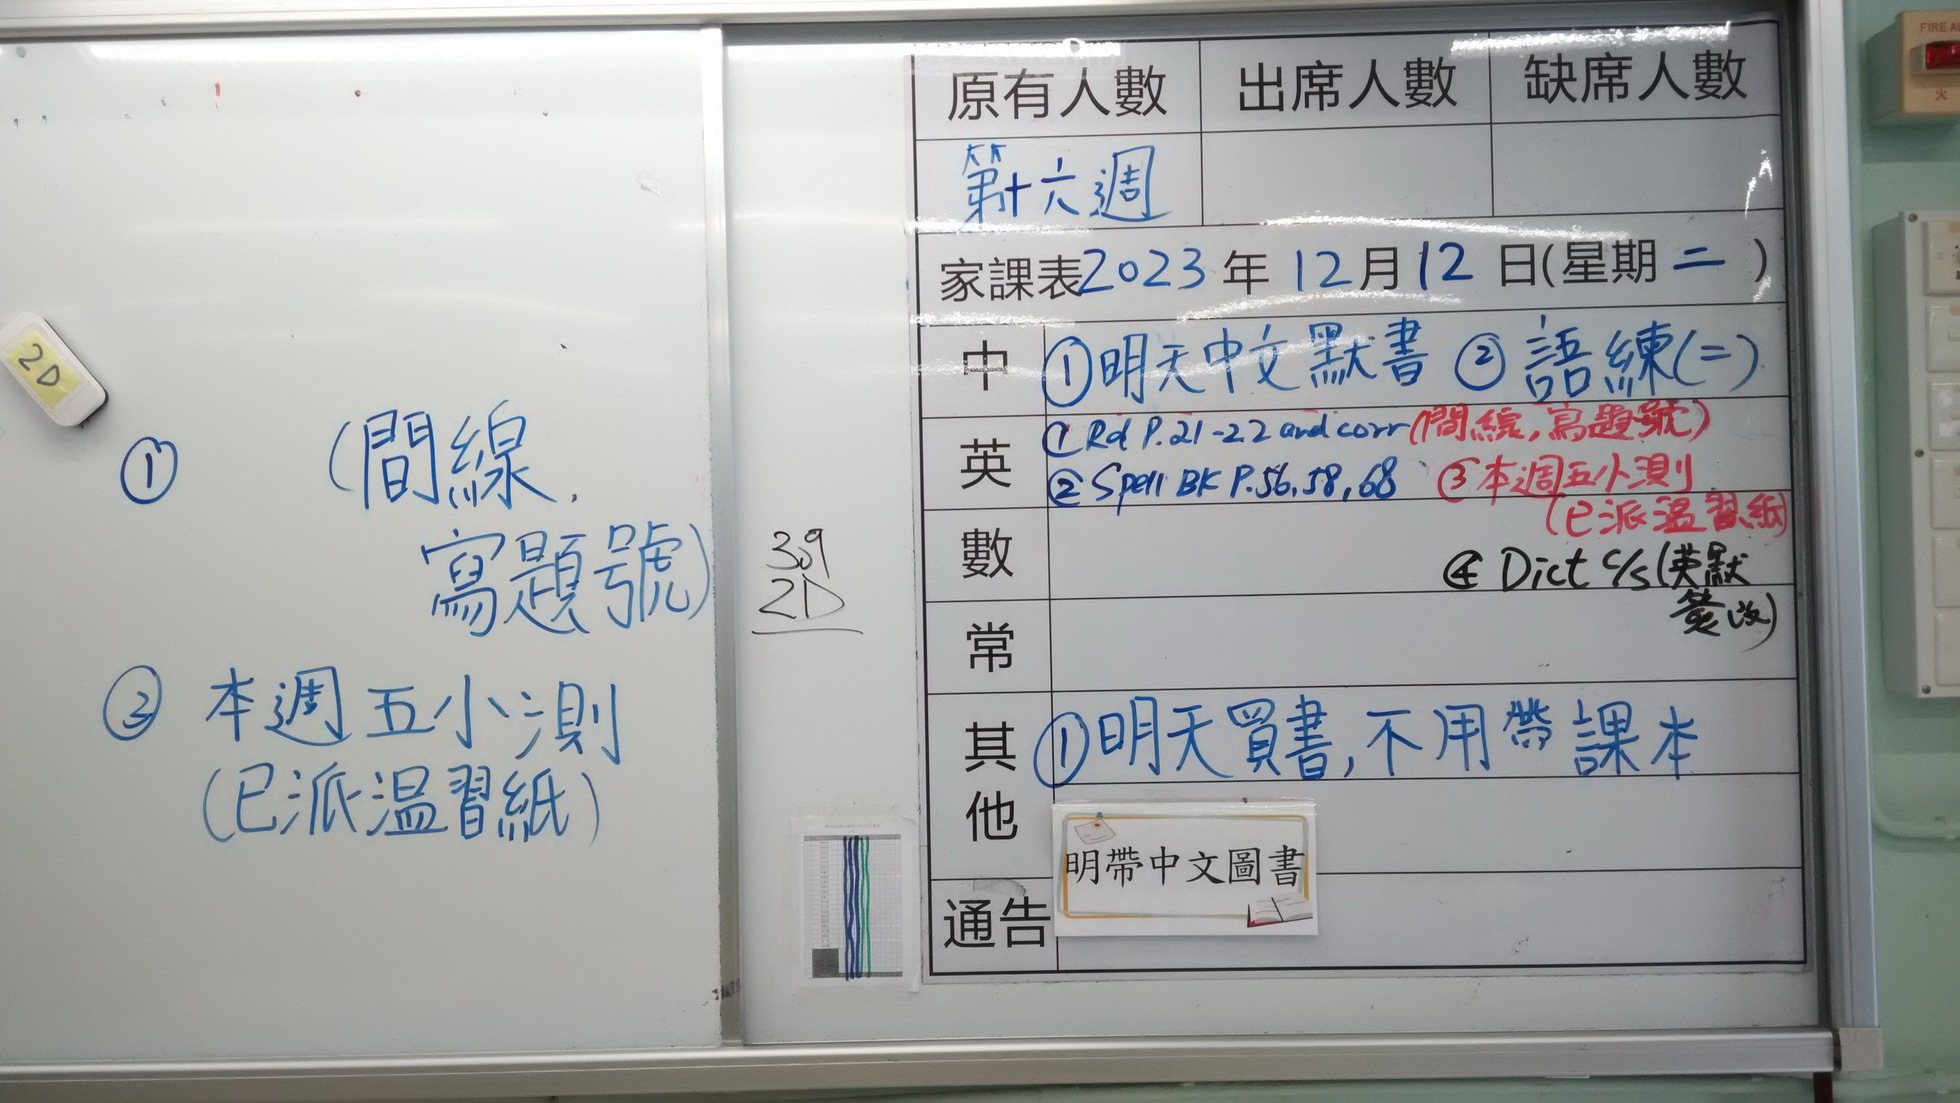 2D
①
(間線,
寫題號)
③ 本週五小測
(已派温習紙)
309
2D
原有人數 出席人數 缺席人數
第十六週
家課表2023年12月12日(星期二)
中 ①明天中文默書 ②語練(二)
英 ① Rd P.21-22 and corr(間線,寫題號)
② Spell BK P.56,58,68 ③本週五小測
(已派温習紙)
數 ④ Dict c/s(英默
簽改)
常
其他 ①明天買書,不用帶課本
明帶中文圖書
通告
FIRE AL
火